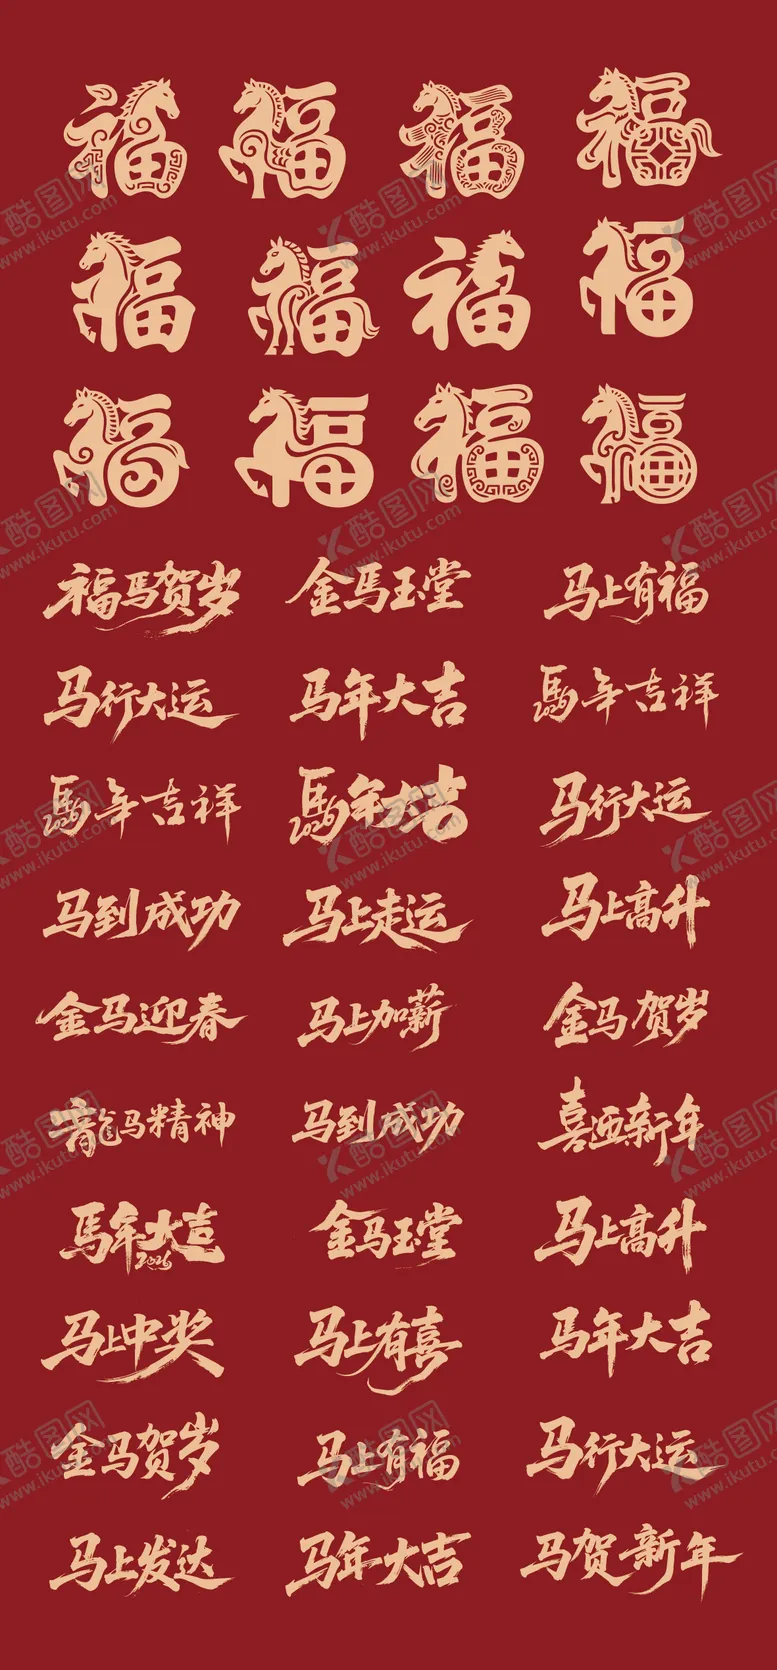 福 福 福 福
福 福 福 福
福 福 福 福
福马贺岁 金马玉堂 马上有福
马行大运 马年大吉 馬年吉祥 2026
馬年吉祥 2026 馬年大吉 2026 马行大运
马到成功 马上走运 马上高升
金马迎春 马上加薪 金马贺岁
龍马精神 马到成功 喜迎新年
馬年大吉 2026 金马玉堂 马上高升
马上中奖 马上有喜 马年大吉
金马贺岁 马上有福 马行大运
马上发达 马年大吉 马贺新年
酷图网
www.ikutu.com